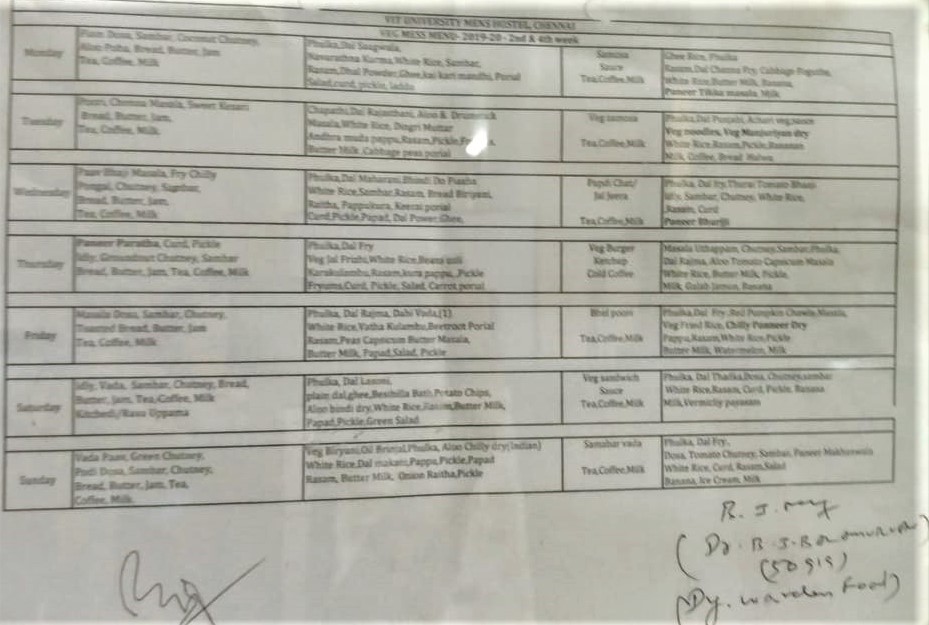 VIT UNIVERSITY MENS HOSTEL, CHENNAI
VEG MESS MENU- 2019-20 - 2nd & 4th week
Monday
Plain Dosa, Sambar, Coconut Chutney,
Aloo Poha, Bread, Butter, Jam
Tea, Coffee, Milk
Phulka,Dal Saagwala,
Navarathna Kurma,White Rice, Sambar,
Rasam,Dhal Powder,Ghee,kai kari mandhi, Porial
Salad,curd, pickle, laddu
Samosa
Sauce
Tea,Coffee,Milk
Ghee Rice, Phulka
Rasam,Dal Channa Fry, Cabbage
White Rice,Butter Milk, Banana,
Paneer Tikka masala, Milk
Tuesday
Poori, Channa Masala, Sweet Kesari
Bread, Butter, Jam,
Tea, Coffee, Milk.
Chapathi,Dal Rajasthani, Aloo & Drumstick
Masala,White Rice, Dingri Muttar
Andhra muda pappu,Rasam,Pickle
Butter Milk Cabbage peas porial
Veg samosa
Tea,Coffee,Milk
Phulka,Dal Punjabi, Achari veg
Veg noodles, Veg Manjuriyan dry
White Rice,Rasam,Pickle,Bananan
Milk, Coffee, Bread Halwa
Wednesday
Paav Bhaji Masala, Fry Chilly
Pongal, Chutney, Sambar,
Bread, Butter, Jam,
Tea, Coffee, Milk
Phulka,Dal Maharani, Bhindi Do Piaaha
White Rice,Sambar,Rasam, Bread Biriyani,
Raitha, Pappukura, Keerai porial
Curd,Pickle,Papad, Dal Power,Ghee,
Papdi Chat/
Jal Jeera
Tea,Coffee,Milk
Phulka, Dal fry,Thurai Tomato Bhaaji
Idly, Sambar, Chutney, White Rice,
,Rasam, Curd
Paneer Bhurjii
Thursday
Paneer Paratha, Curd, Pickle
Idly, Groundnut Chutney, Sambar
Bread, Butter, Jam, Tea, Coffee, Milk
Phulka,Dal Fry
Veg Jal Frizhi,White Rice,Beans usili
Karakulambu,Rasam,kura pappu, ,Pickle
Fryums,Curd, Pickle, Salad, Carrot porial
Veg Burger
Ketchup
Cold Coffee
Masala Uthappam, Chutney,Sambar,Phulka,
Dal Rajma, Aloo Tomato Capsicum Masala
White Rice, Butter Milk, Pickle,
Milk, Gulab Jamun, Banana
Friday
Masala Dosa, Sambar, Chutney,
Toasted Bread, Butter, Jam
Tea, Coffee, Milk
Phulka, Dal Rajma, Dahi Vada,(1)
White Rice,Vatha Kulambu,Beetroot Porial
Rasam,Peas Capsicum Butter Masala,
Butter Milk, Papad,Salad, Pickle
Bhel poori
Tea,Coffee,Milk
Phulka,Dal Fry ,Red Pumpkin Chawla,Masala,
Veg Fried Rice, Chilly Panneer Dry
Pappu,Rasam,White Rice,Pickle
Butter Milk, Watermelon, Milk
Saturday
Idly, Vada, Sambar, Chutney, Bread,
Butter, Jam, Tea,Coffee, Milk
Kitchedi/Rava Uppama
Phulka, Dal Lasooni,
plain dal,ghee,Besibilla Bath,Potato Chips,
Aloo bindi dry,White Rice,Rasam,Butter Milk,
Papad,Pickle,Green Salad
Veg sandwich
Sauce
Tea,Coffee,Milk
Phulka, Dal Thadka,Dosa, Chutney,sambar
White Rice,Rasam, Curd, Pickle, Banana
Milk,Vermicily payasam
Sunday
Vada Paav, Green Chutney,
Podi Dosa, Sambar, Chutney,
Bread, Butter, Jam, Tea,
Coffee, Milk.
Veg Biryani,Oil Brinjal,Phulka, Aloo Chilly dry(Indian)
White Rice,Dal makani,Pappu,Pickle,Papad
Rasam, Butter Milk, Onion Raitha,Pickle
Sambhar vada
Tea,Coffee,Milk
Phulka, Dal Fry,
Dosa, Tomato Chutney, Sambar, Paneer Makhanwala
White Rice, Curd, Rasam,Salad
Banana, Ice Cream, Milk
(50919)
(Dy. warden Food)